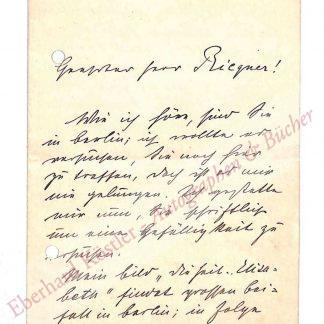 Geehrter Herr Riegner!
Wie ich höre, sind Sie
in berlin; ich wollte er
versuchen, Sie auch hier
zu treffen, doch ist es mir
nie gelungen.
mir nun, Sie schriftlich
um eine Gefälligkeit zu
ersuchen.
Mein bild „die heil. Elisa-
beth" findet grossen bei-
fall in berlin; in folge
Eberhard Köstler Autographen & Bücher